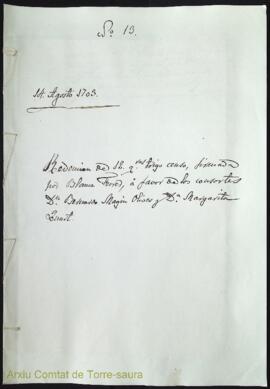 Nº 13.
14. Agosto 1703.
Redencion de 16. q.nes trigo censo, firmada
por Blanca à favor de los consortes
Dn. Magin Olives y Da. Margarita
Arxiu Comtat de Torre-saura